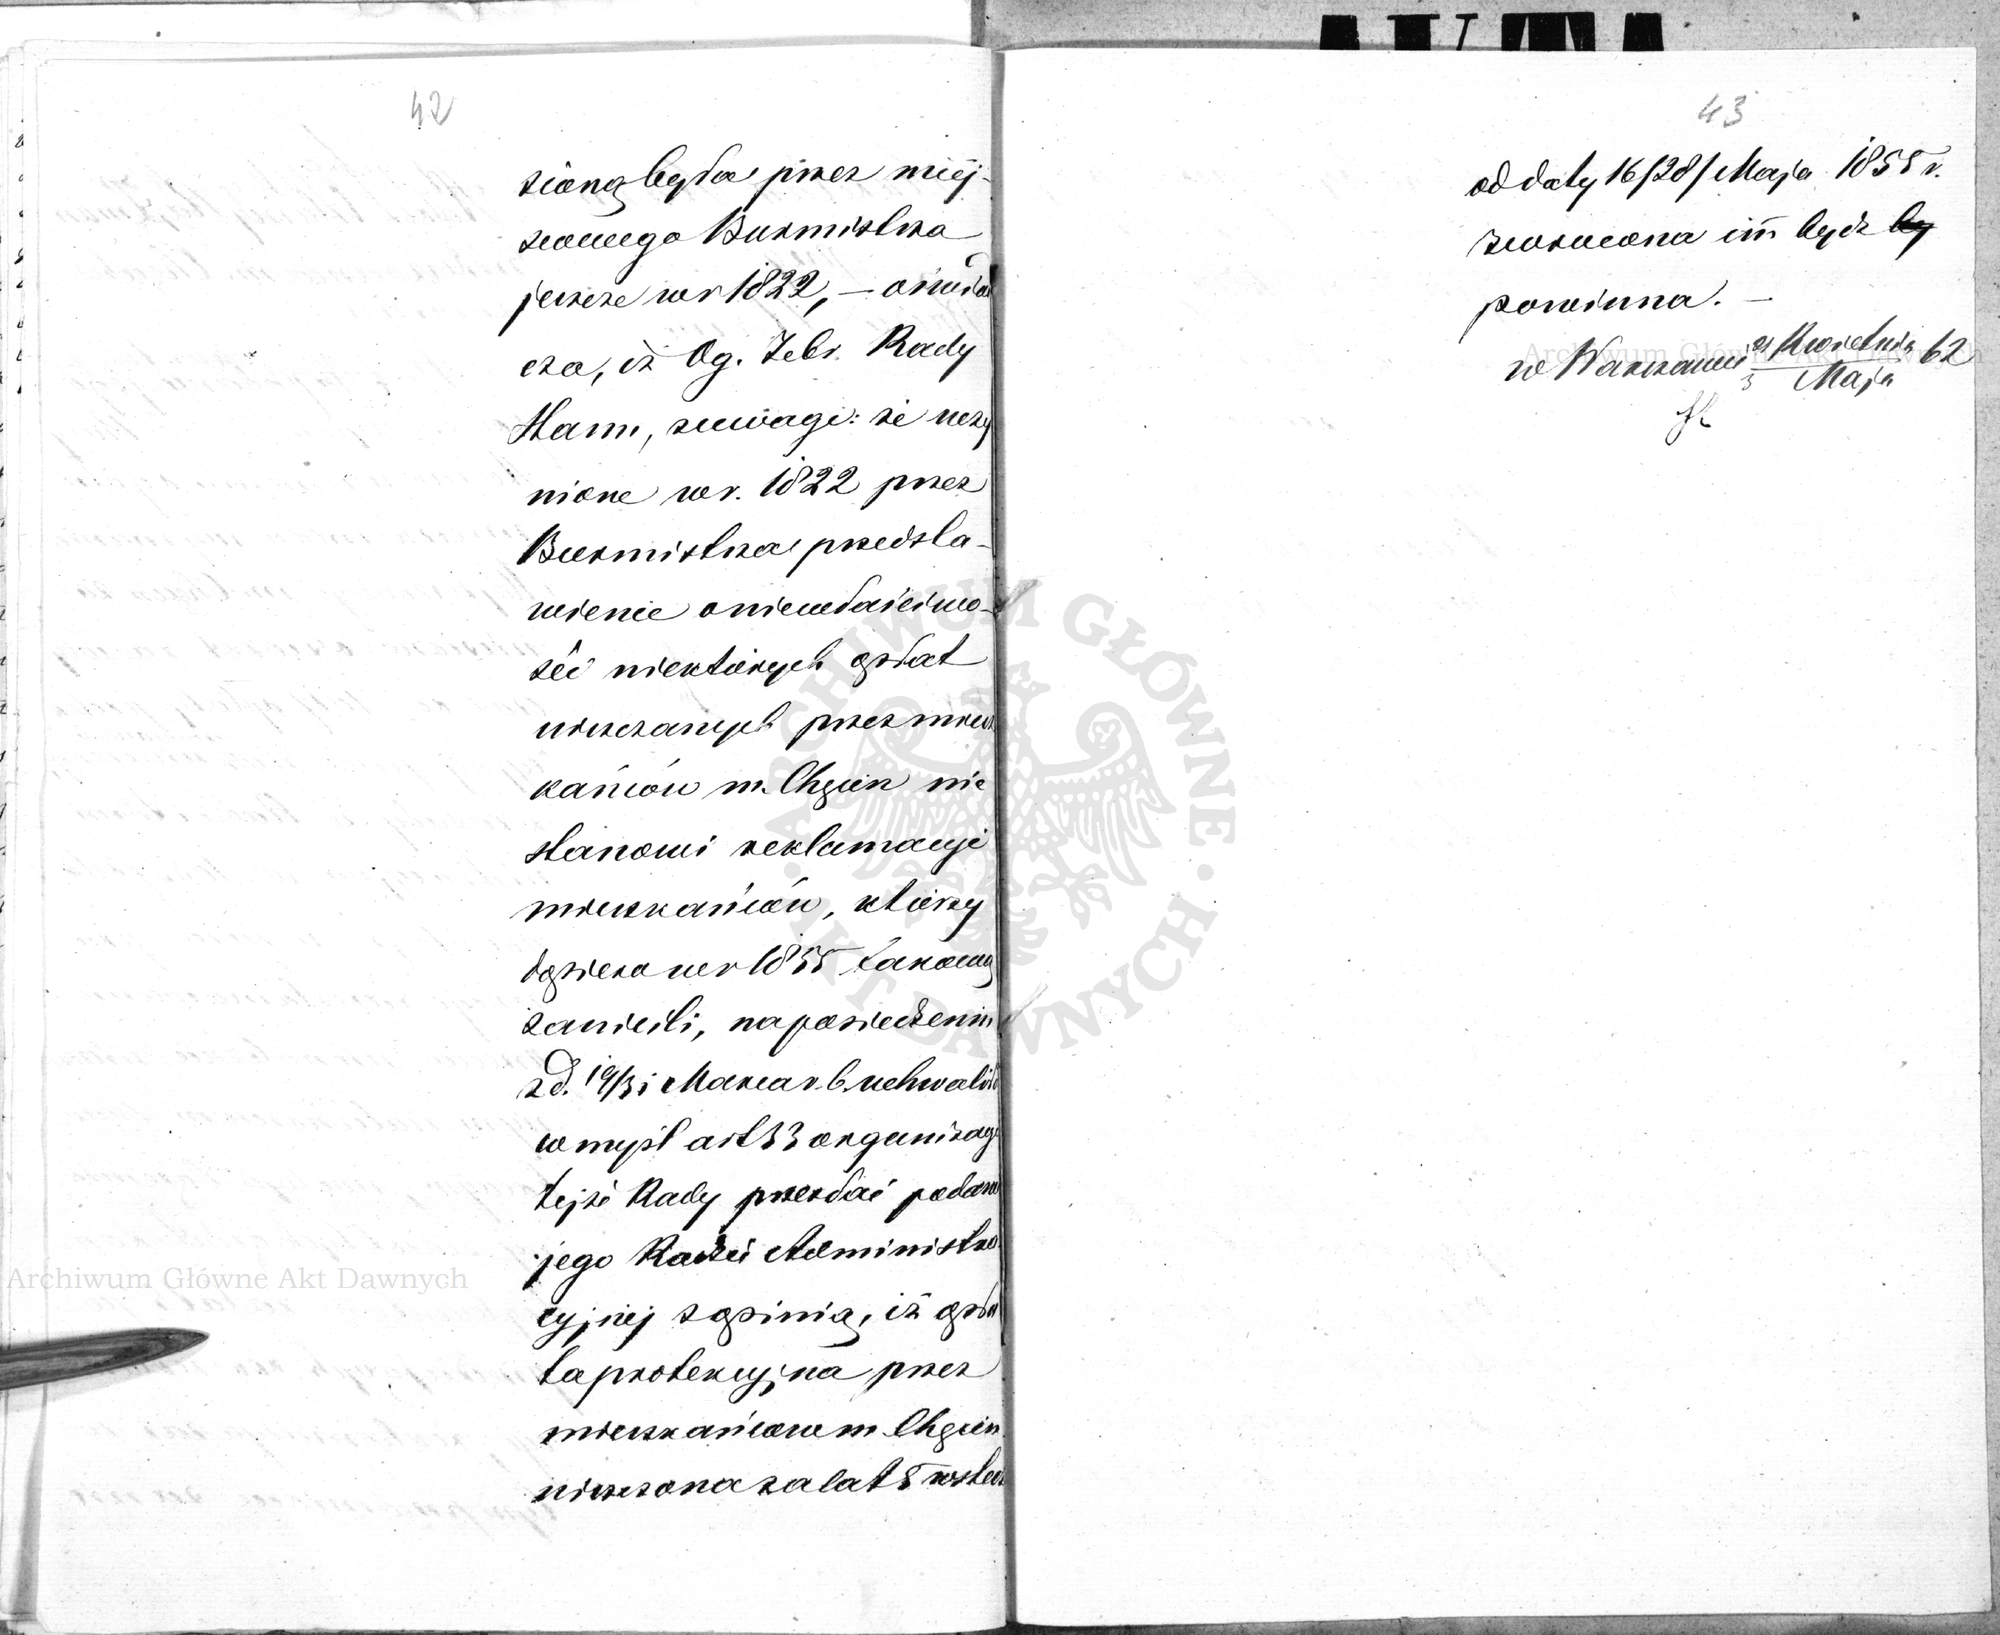 42
sioną była przez miej-
scowego Burmistrza
jeszcze w r 1822, — oświad
cza, iż Og. Zebr. Rady
Stanu, z uwagi: że uczy
nione w r. 1822 przez
Burmistrza przedsta-
wienie o niewłaściwo-
ści niektórych opłat
uiszczanych przez miesz
kańców m. Chęcin nie
stanowi reklamacyi
mieszkańców, którzy
dopiero w r 1855 takową
zanieśli, na posiedzeniu
z d. 19/31 Marca r. b. uchwaliło
w myśl art 33 organizacyi
tejże Rady przesłać podanie
jego Radzie Administra
cyjnej z opinią, iż opła
ta protekcyjna przez
mieszkańców m. Chęcin
uiszczona za lat 5 wstecz
43
od daty 16/28/ Maja 1855 r.
zwrócona im być by
powinna. —
w Warszawie 21 Kwietnia 62
3 Maja
Archiwum Główne Akt Dawnych
Archiwum Główne Akt Dawnych
ARCHIWUM GŁÓWNE · AKT DAWNYCH ·